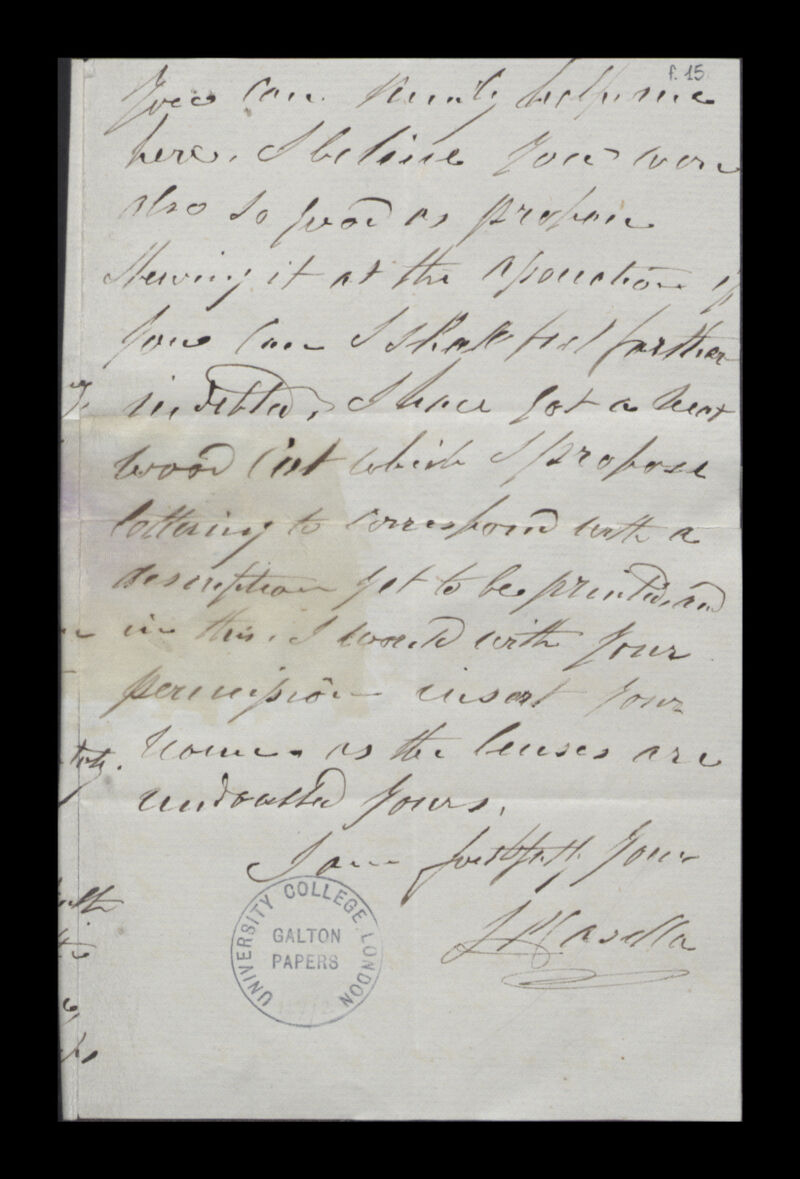 f. 15
You can kindly help me
here. I believe you were
also so good as propose
shewing it at the association if
you can I shall feel farther
indebted, I have got a neat
wood cut which I propose
lettering to correspond with a
description yet to be printed, and
in this, I would with your
permission insert your
name as the lenses are
undoubted yours.
I am faithfully yours
L P Casella
UNIVERSITY COLLEGE LONDON
GALTON
PAPERS